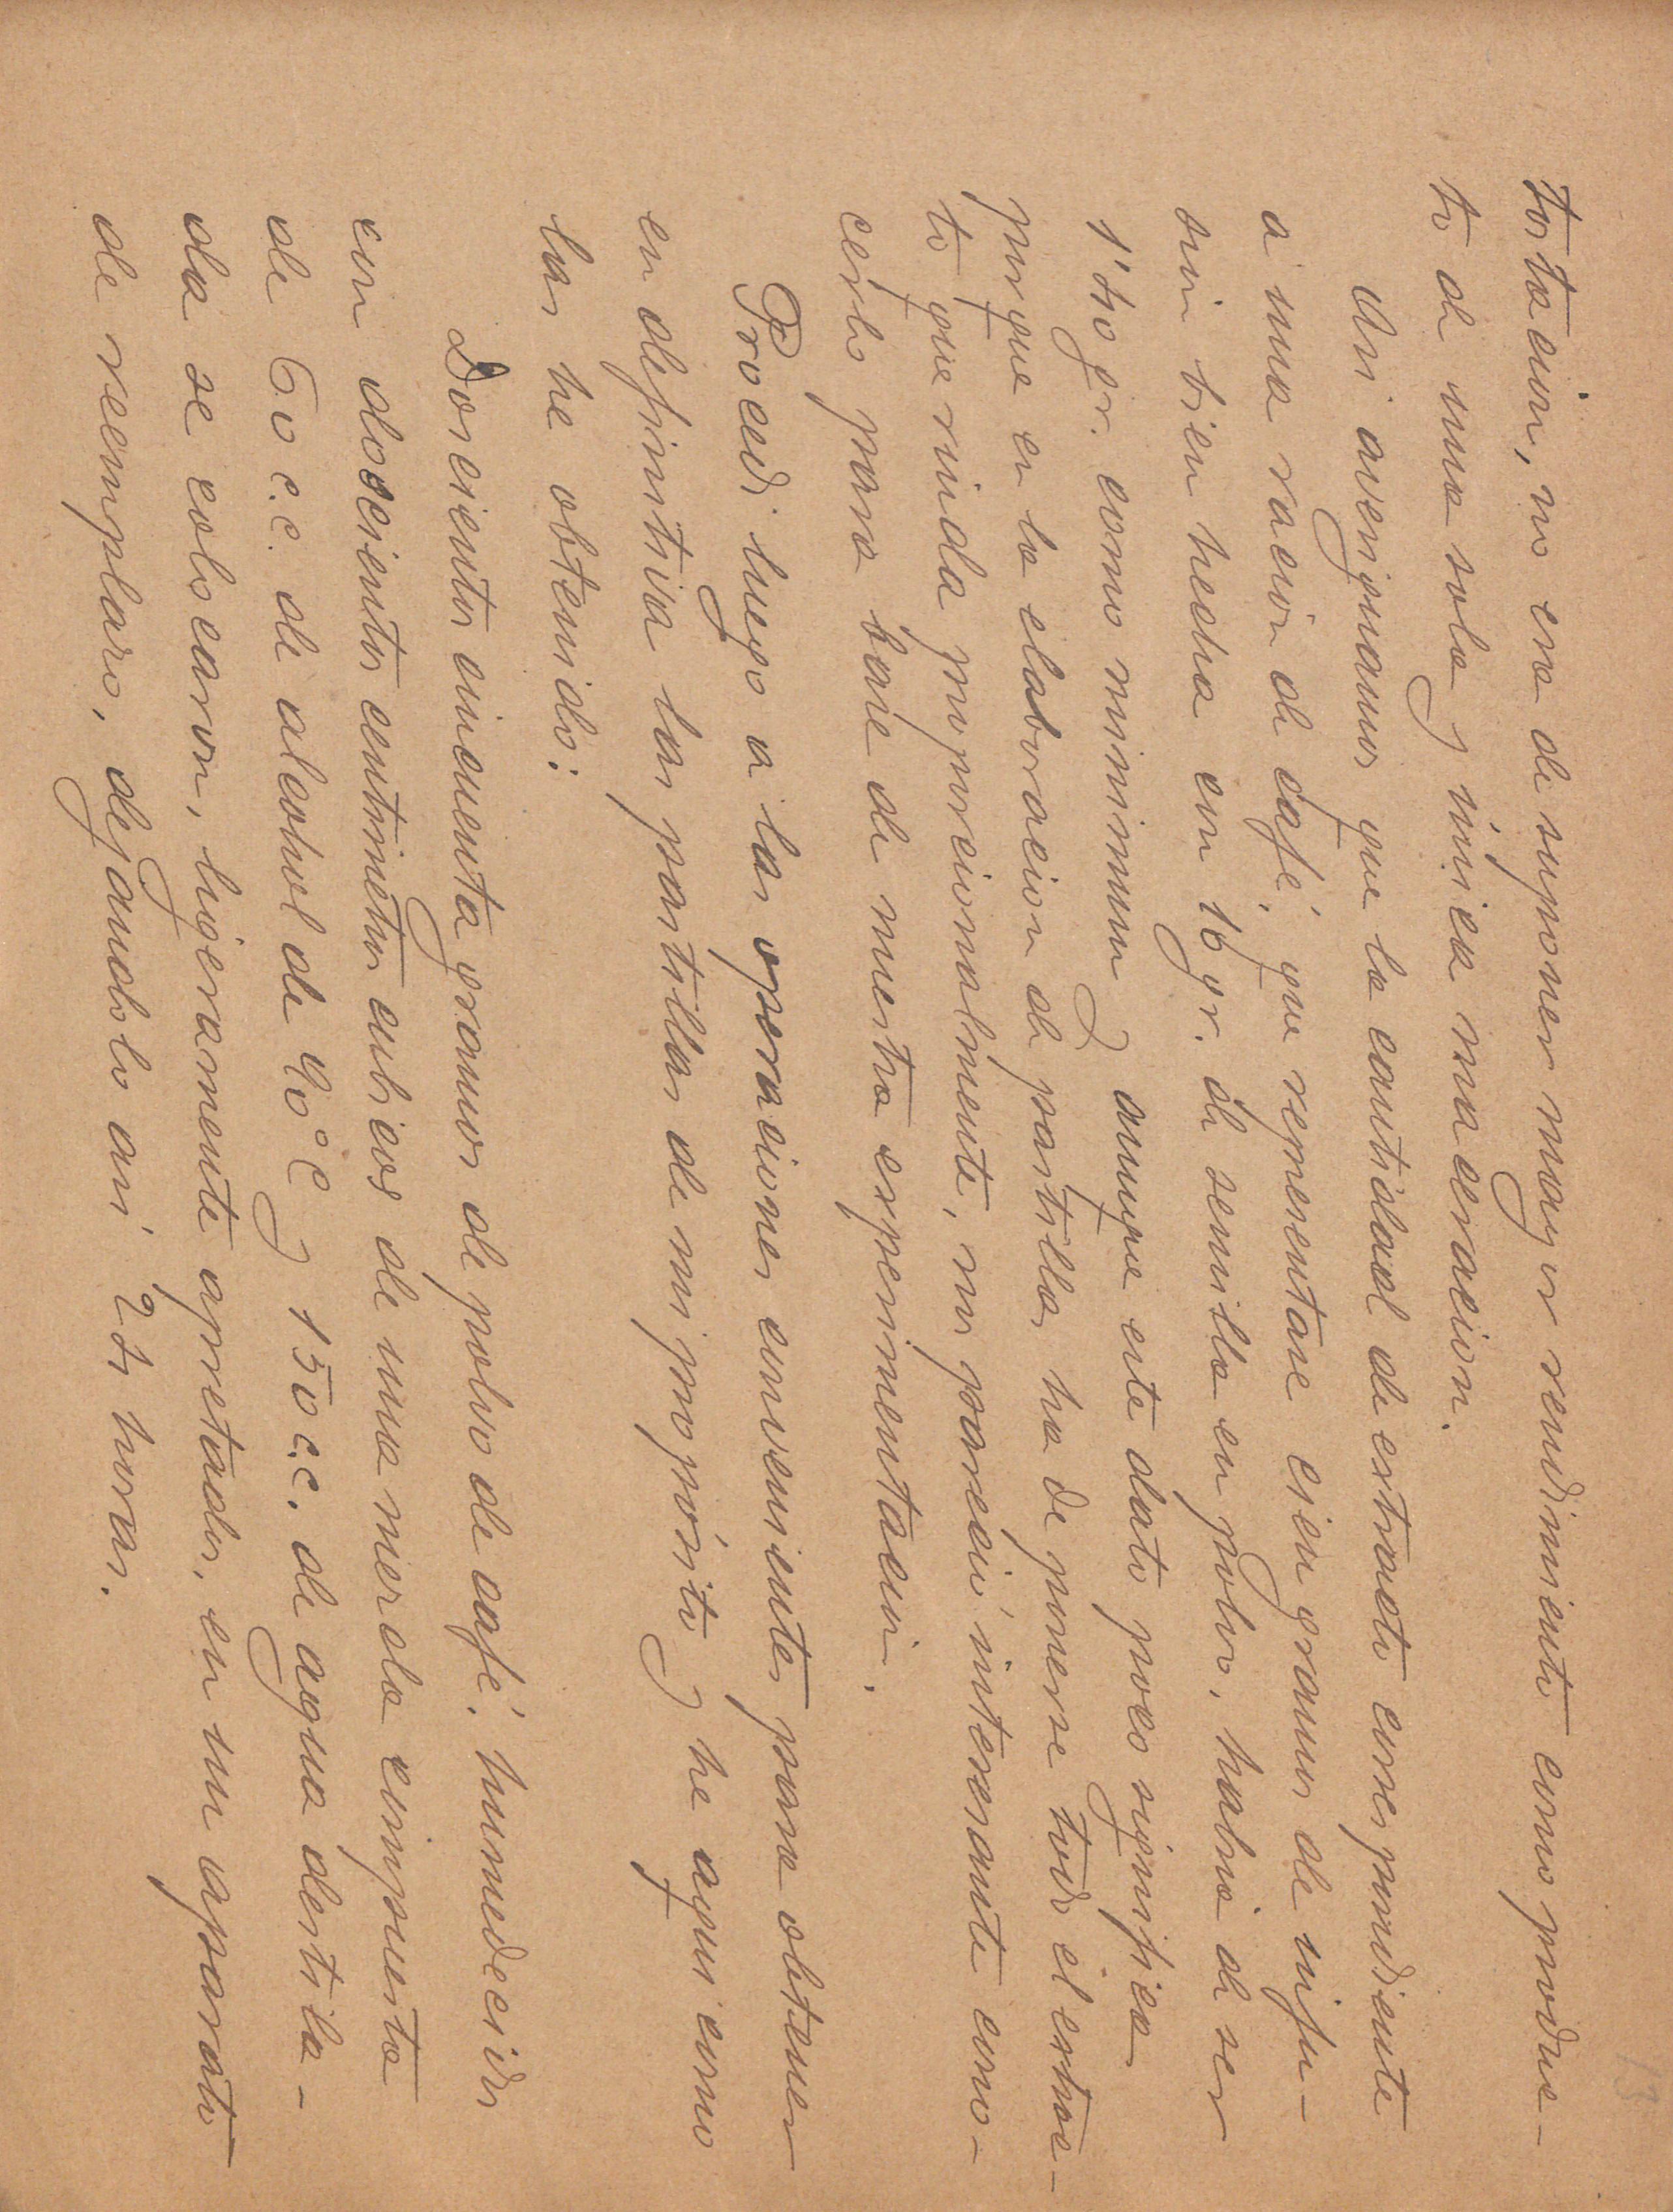 13
tostacion, no era de suponer mayor rendimiento como produc-
to de una sola y única maceracion.
Asi averiguamos que la cantidad de extracto correspondiente
a una racion de café, que representase cien gramos de infu-
sion bien hecha con 16 gr. de semilla en polvo, habria de ser
1'40 gr. como minimum y aunque este dato poco significa
porque en la elaboracion de pastillas ha de ponerse todo el extrac-
to que rinda proporcionalmente, nos pareció interesante cono-
cerlo para base de nuestra experimentacion.
Procedi luego a las operaciones convenientes para obtener
en definitiva las pastillas de mi propósito y he aqui como
las he obtenido:
Doscientos cincuenta gramos de polvo de café, humedecidos
con doscientos centímetros cubicos de una mezcla compuesta
de 50 c.c. de alcohol de 40°C y 150 c.c. de agua destila-
da se colocaron, ligeramente apretados, en un aparato
de reemplazo, dejandolo asi 24 horas.